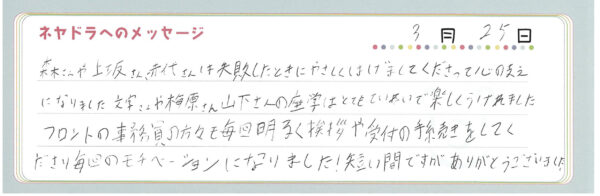 ネヤドラへのメッセージ
3月25日
森本さんや上坂さん、赤代さんは失敗したときにやさしくはげましてくださって心の支え
になりました 文字さんや梅原さん山下さんの座学はとてもていねいで楽しくうけれました
フロントの事務員の方々も毎回明るく挨拶や受付の手続きをしてく
ださり毎回のモチベーションになりました!短い間ですがありがとうございました